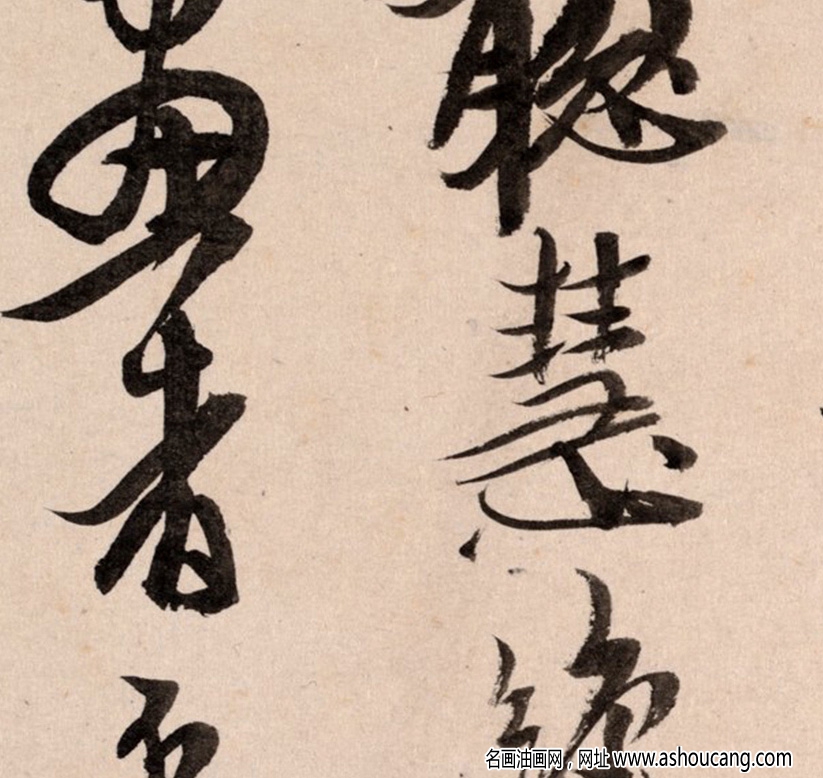 聰慧
畫者不
名画油画网，网址 www.ashoucang.com